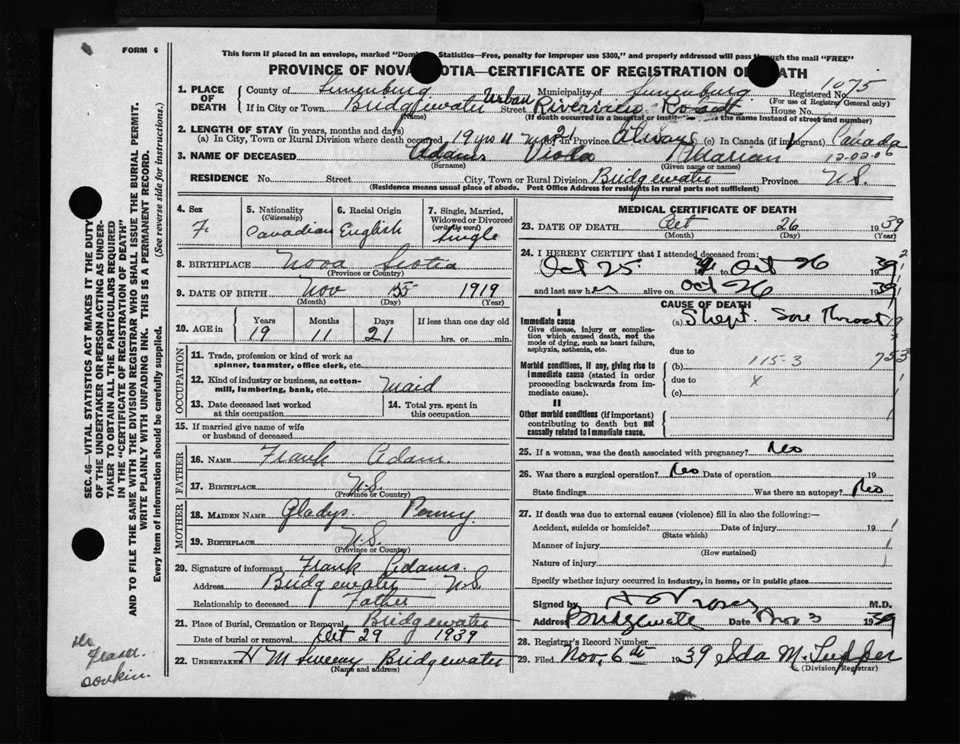 FORM 6
This form if placed in an envelope, marked "Dom Statistics—Free, penalty for improper use $300," and properly addressed will pass through the mail "FREE"
PROVINCE OF NOVA SCOTIA—CERTIFICATE OF REGISTRATION OF DEATH
1. PLACE OF DEATH County of Lunenburg Municipality of Lunenburg Registered No. 1075
(For use of Registrar General only)
If in City or Town Bridgewater Urban Street Riverview Road House No.
(Name) (If death occurred in a hospital or institution the name instead of street and number)
2. LENGTH OF STAY (in years, months and days)
(a) In City, Town or Rural Division where death occurred 19 yrs 11 mos 21 In Province Always (c) In Canada (if immigrant) Canada
3. NAME OF DECEASED Adams Viola Marian 12-02-06
(Surname) (Given name or names)
RESIDENCE No. Street City, Town or Rural Division Bridgewater Province N.S.
(Residence means usual place of abode. Post Office Address for residents in rural parts not sufficient)
4. Sex F.
5. Nationality (Citizenship) Canadian
6. Racial Origin English
7. Single, Married, Widowed or Divorced (write the word) Single
8. BIRTHPLACE Nova Scotia
(Province or Country)
9. DATE OF BIRTH Nov 5 1919
(Month) (Day) (Year)
10. AGE in Years Months Days If less than one day old
19 11 21 hrs. or min.
OCCUPATION
11. Trade, profession or kind of work as spinner, teamster, office clerk, etc.
12. Kind of industry or business, as cotton-mill, lumbering, bank, etc. Maid
13. Date deceased last worked at this occupation.
14. Total yrs. spent in this occupation.
15. If married give name of wife or husband of deceased
FATHER
16. NAME Frank Adam.
17. BIRTHPLACE N.S.
(Province or Country)
MOTHER
18. MAIDEN NAME Gladys Penny
19. BIRTHPLACE N.S.
(Province or Country)
20. Signature of informant Frank Adams.
Address Bridgewater N.S.
Relationship to deceased Father
21. Place of Burial, Cremation or Removal Bridgewater
Date of burial or removal Oct 29 1939
22. UNDERTAKER H M Sweeny Bridgewater
(Name and address)
MEDICAL CERTIFICATE OF DEATH
23. DATE OF DEATH Oct 26 1939
(Month) (Day) (Year)
24. I HEREBY CERTIFY that I attended deceased from:
Oct 25 39 to Oct 26 1939
and last saw her alive on Oct 26 1939
CAUSE OF DEATH
I
Immediate cause
Give disease, injury or complication which caused death, not the mode of dying, such as heart failure, asphyxia, asthenia, etc.
(a) Shept. Sore Throat
due to
(b) 115-3 753
Morbid conditions, if any, giving rise to immediate cause (stated in order proceeding backwards from immediate cause).
due to x
(c)
II
Other morbid conditions (if important) contributing to death but not causally related to immediate cause.
25. If a woman, was the death associated with pregnancy? No
26. Was there a surgical operation? No Date of operation 19
State findings Was there an autopsy? No
27. If death was due to external causes (violence) fill in also the following:—
Accident, suicide or homicide? Date of injury 19
(State which)
Manner of injury
(How sustained)
Nature of injury
Specify whether injury occurred in industry, in home, or in public place
Signed by M.D.
Address Bridgewater Date Nov 3 1939
28. Registrar's Record Number
29. Filed Nov. 6th 1939 Ida M. Tupper
(Division Registrar)
SEC. 46—VITAL STATISTICS ACT MAKES IT THE DUTY
OF THE UNDERTAKER OR PERSON ACTING AS UNDER-
TAKER TO OBTAIN ALL THE PARTICULARS REQUIRED
IN THE "CERTIFICATE OF REGISTRATION OF DEATH"
AND TO FILE THE SAME WITH THE DIVISION REGISTRAR WHO SHALL ISSUE THE BURIAL PERMIT.
WRITE PLAINLY WITH UNFADING INK. THIS IS A PERMANENT RECORD.
Every item of Information should be carefully supplied. (See reverse side for instructions.)